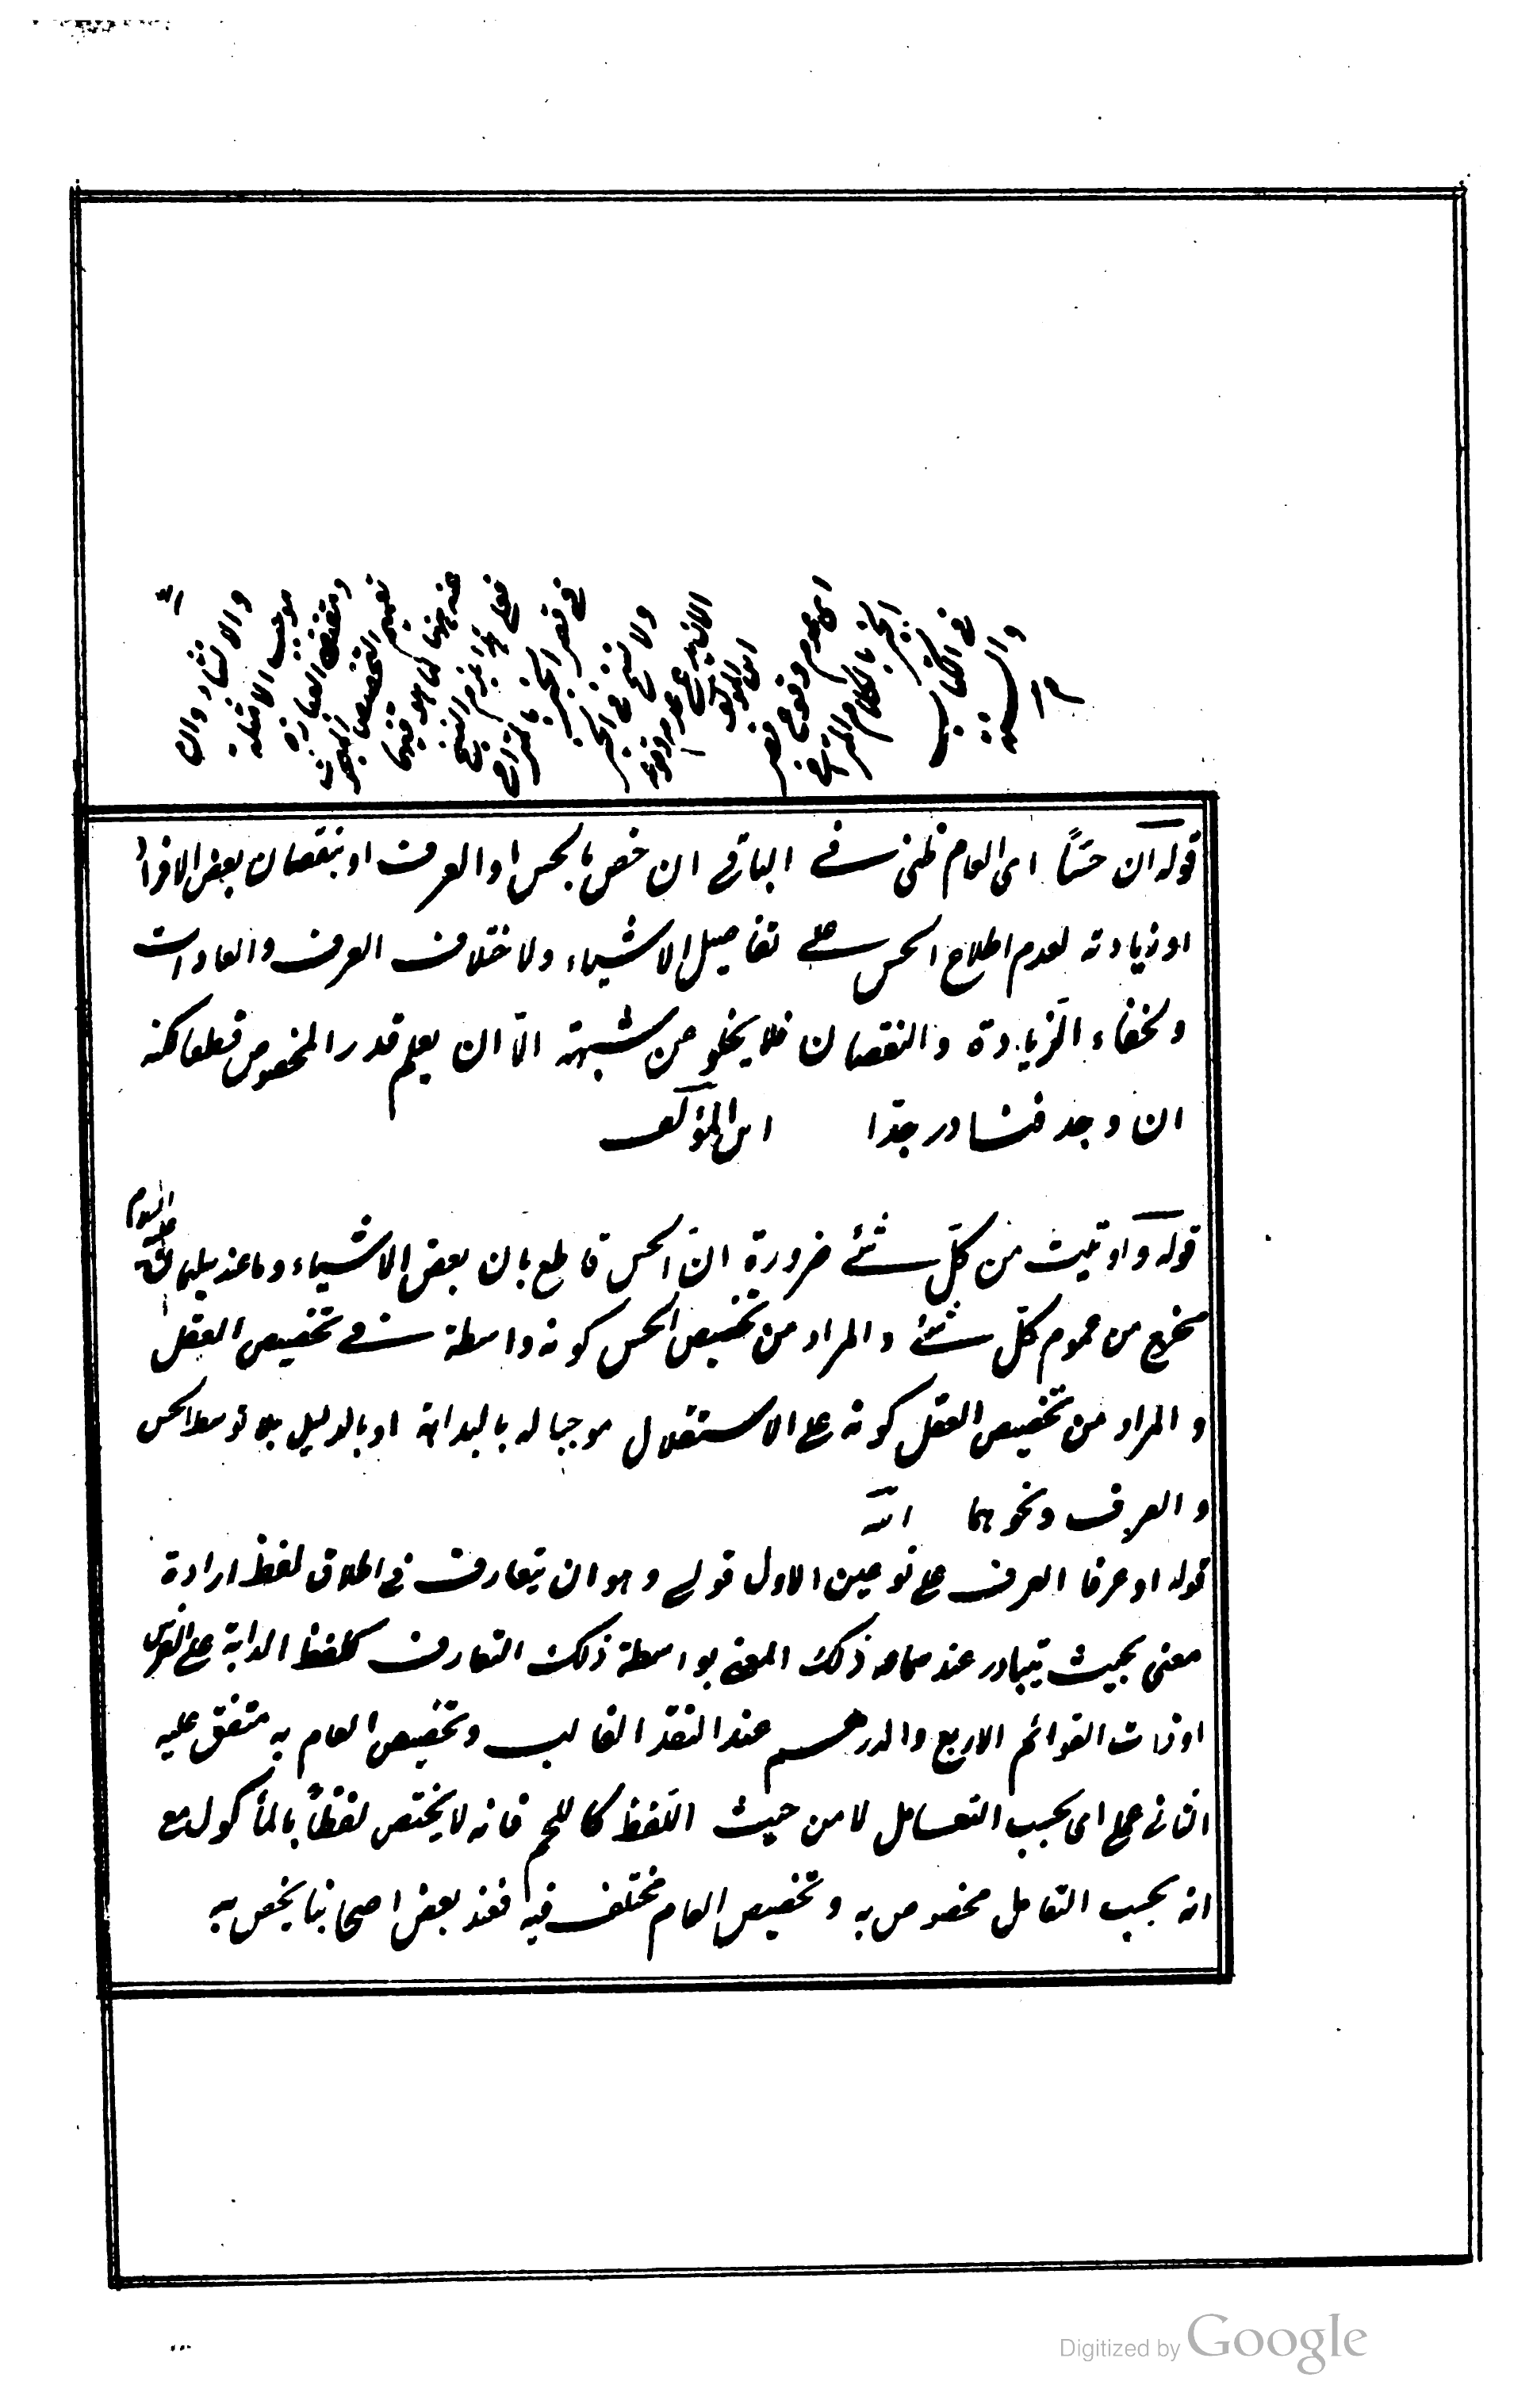 والسنة
في الكتاب
الخبر بالكلام
اى عموم وقوع
ابن المؤلف
والانشاء وان
قوله ان حسّاً اى العام ظنى فى الباقى ان خص بالحس او العرف او بنقصان بعض الافراد
او زيادته لعدم اطلاع الحس على تفاصيل الاشياء ولاختلاف العرف والعادات
ولخفاء الزيادة والنقصان فلا يخلو عن شبهة الّا ان يعلم قدر المخصوص قطعا لكنه
ان وجد فنادر جدّا ابن المؤلف
قوله واوتيت من كلّ شئ ضرورة انّ الحس قاطع بان بعض الاشياء وما عند سليمان عليه السلام
مخرج من عموم كلّ شئ والمراد من تخصيص الحس كونه واسطة فى تخصيص العقل
والمراد من تخصيص العقل كونه على الاستقلال موجبا له بالبداهة او بالدليل بلا توسط الحس
والعرف ونحوهما
قوله او عرفا العرف على نوعين الاول قولى وهو ان يتعارف فى اطلاق لفظ ارادة
معنى بحيث يتبادر عند سماعه ذلك المعنى بواسطة ذلك التعارف كلفظ الدابة على الفرس
او ذات القوائم الاربع والدرهم عند النقد الغالب وتخصيص العام به متفق عليه
الثانى عملى اى بحسب التعامل لا من حيث اللّفظ كاللحم فانه لا يختص لفظاً بالمأكول مع
انه بحسب التعامل مخصوص به وتخصيص العام مختلف فيه فعند بعض اصحابنا يخص به
Digitized by Google